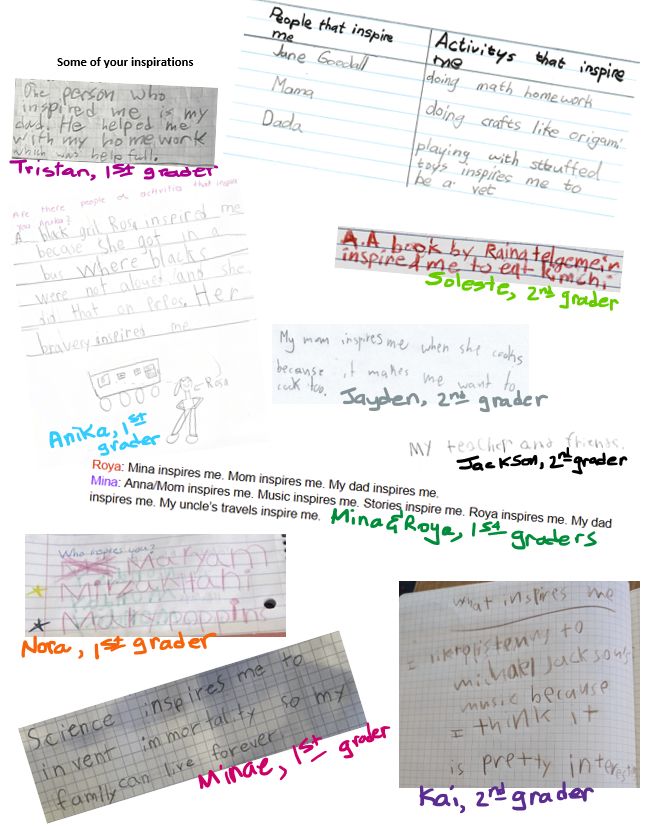 Some of your inspirations
One person who
inspired me is my
dad. He helped me
with my homework
which was help full.
Tristan, 1st grader
People that inspire
me
Jane Goodall
Mama
Dada
Activitys that inspire
me
doing math homework
doing crafts like origami
playing with stuffed
toys inspires me to
be a vet
Are there people or activitis that inspire
you Anika?
A blak girl Rosa inspired me
becase she got in a
bus where blacks
were not aloued and she
did that on prpos. Her
bravery inspired me
Rosa
Anika, 1st
grader
A.A book by, Raina telgemeir
inspired me to eat kimchi
Soleste, 2nd grader
My mom inspires me when she cooks
because it makes me want to
cook too.
Jayden, 2nd grader
MY teacher and friends.
Jackson, 2nd grader
Roya: Mina inspires me. Mom inspires me. My dad inspires me.
Mina: Anna/Mom inspires me. Music inspires me. Stories inspire me. Roya inspires me. My dad
inspires me. My uncle's travels inspire me.
Mina & Roya, 1st graders
Who inspires you?
Maryam
Mirzakhani
Marypoppins
Nora, 1st grader
Science inspires me to
invent immortality so my
family can live forever.
Minae, 1st grader
what inspires me
I like listening to
michael Jackson's
music because
I think it
is pretty interesting
Kai, 2nd grader